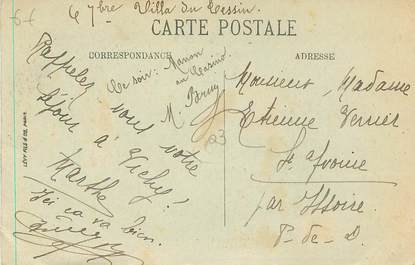 6 7bre Villa du Tessin.
CARTE POSTALE
CORRESPONDANCE
ADRESSE
Rappelez vous votre
séjour à Vichy!
Marthe
Ici ça va bien.
Ce soir: Manon
au Casino
M.
23
Monsieur, Madame
Etienne Vernier
St Yvoine
par Issoire
P-de-D.
LÉVY FILS & CIE, PARIS